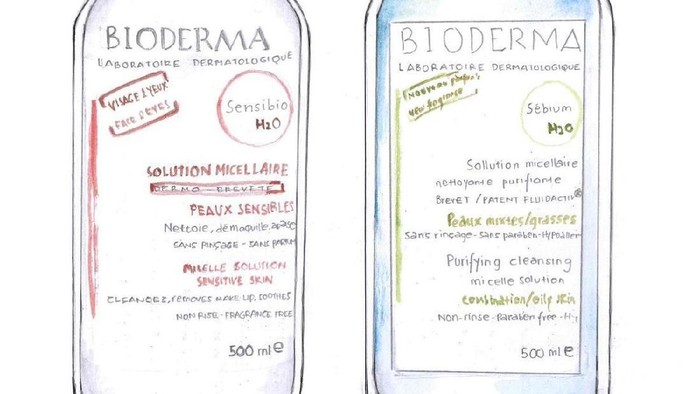 BIODERMA
LABORATOIRE DERMATOLOGIQUE
VISAGE & YEUX
FACE & EYES
Sensibio
H2O
SOLUTION MICELLAIRE
DERMO-BREVETÉ
PEAUX SENSIBLES
Nettoie, démaquille, apaise
SANS RINÇAGE - SANS PARFUM
MICELLE SOLUTION
SENSITIVE SKIN
CLEANSES, REMOVES MAKE UP, SOOTHES
NON RISE - FRAGRANCE FREE
500 ml e
BIODERMA
LABORATOIRE DERMATOLOGIQUE
NOUVEAU
new fragrance
Sébium
H2O
Sollution micellaire
nettoyante purifiante
BREVET / PATENT FLUIDACTIV®
Peaux mixtes/grasses
Sans rinçage - Sans paraben - Hypoaller
Purifying cleansing
micelle solution
combination/oily skin
Non-rinse - Paraben free - H
500 ml e